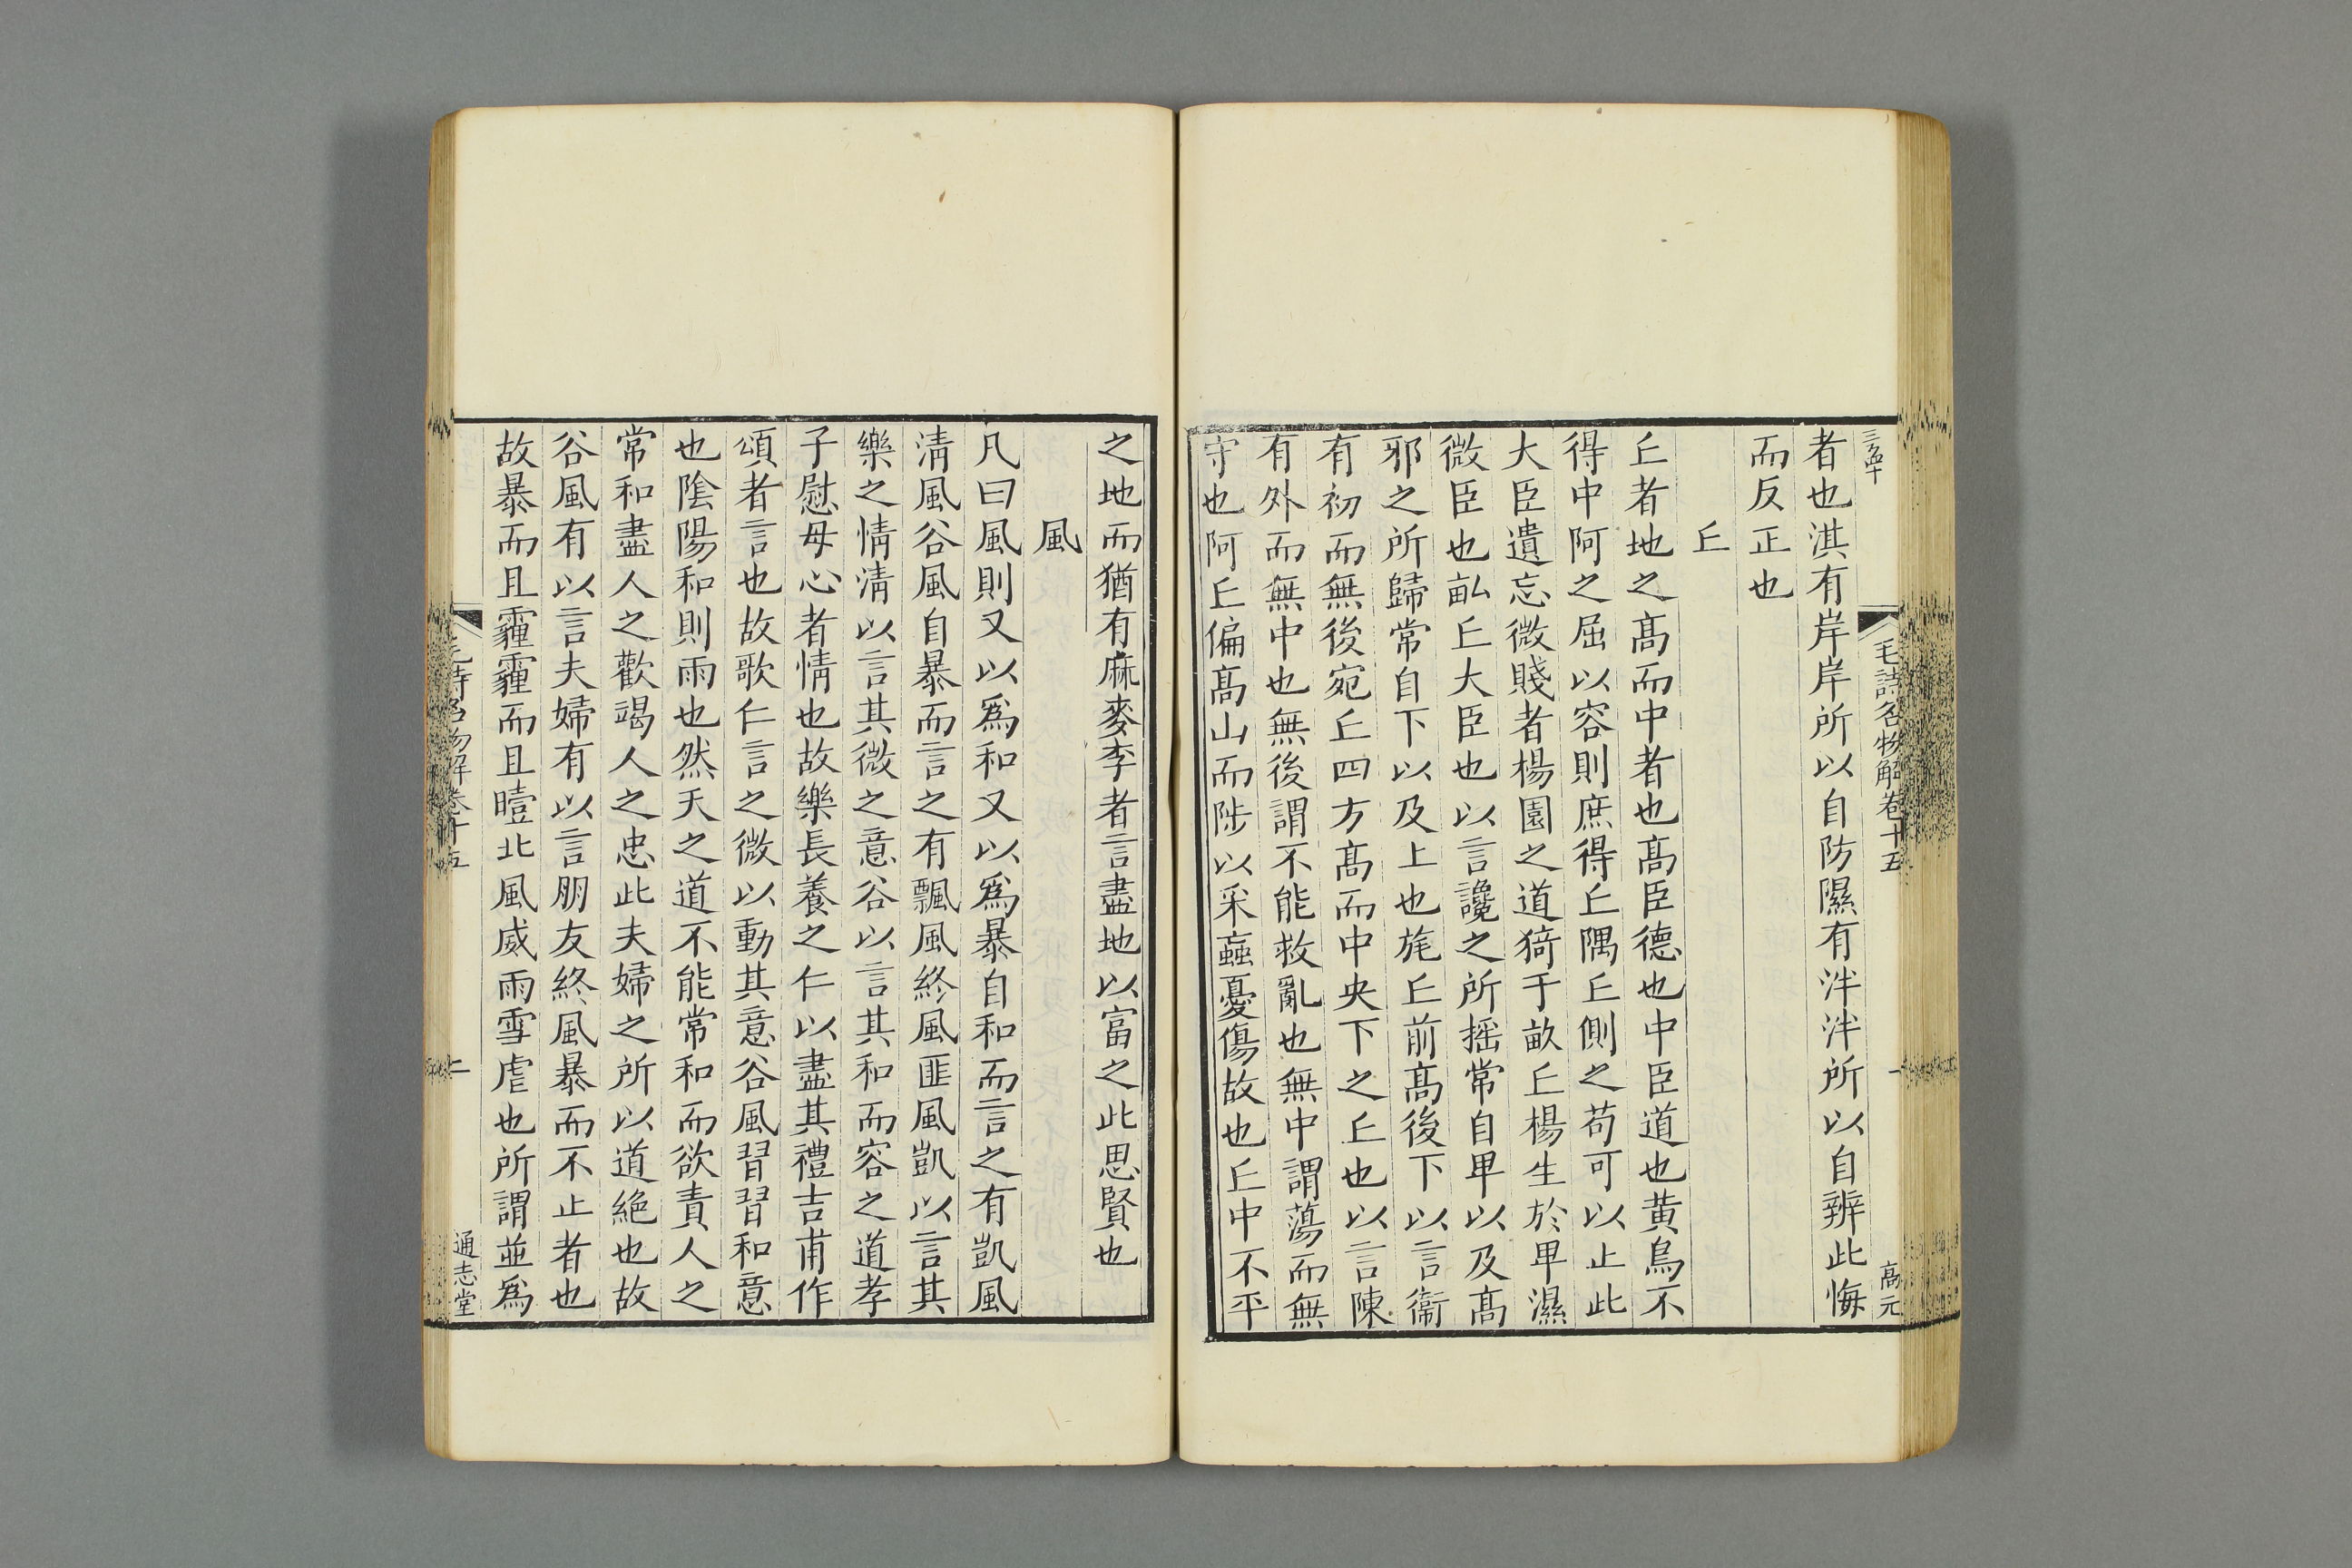 毛詩名物解卷十五
一
高元
者也淇有岸岸所以自防隰有泮泮所以自辨此悔
而反正也
丘
丘者地之髙而中者也髙臣德也中臣道也黄鳥不
得中阿之屈以容則庶得丘隅丘側之苟可以止此
大臣遺忘微賤者楊園之道猗于畝丘楊生於卑濕
微臣也畝丘大臣也以言讒之所摇常自卑以及髙
邪之所歸常自下以及上也旄丘前髙後下以言衞
有初而無後宛丘四方髙而中央下之丘也以言陳
有外而無中也無後謂不能救亂也無中謂蕩而無
守也阿丘偏髙山而陟以采蝱憂傷故也丘中不平
之地而猶有麻麥李者言盡地以富之此思賢也
風
凡曰風則又以爲和又以爲暴自和而言之有凱風
淸風谷風自暴而言之有飄風終風匪風凱以言其
樂之情淸以言其微之意谷以言其和而容之道孝
子慰母心者情也故樂長養之仁以盡其禮吉甫作
頌者言也故歌仁言之微以動其意谷風習習和意
也陰陽和則雨也然天之道不能常和而欲責人之
常和盡人之歡竭人之忠此夫婦之所以道絶也故
谷風有以言夫婦有以言朋友終風暴而不止者也
故暴而且霾霾而且曀北風威雨雪虐也所謂並爲
毛詩名物解卷十五
二
通志堂